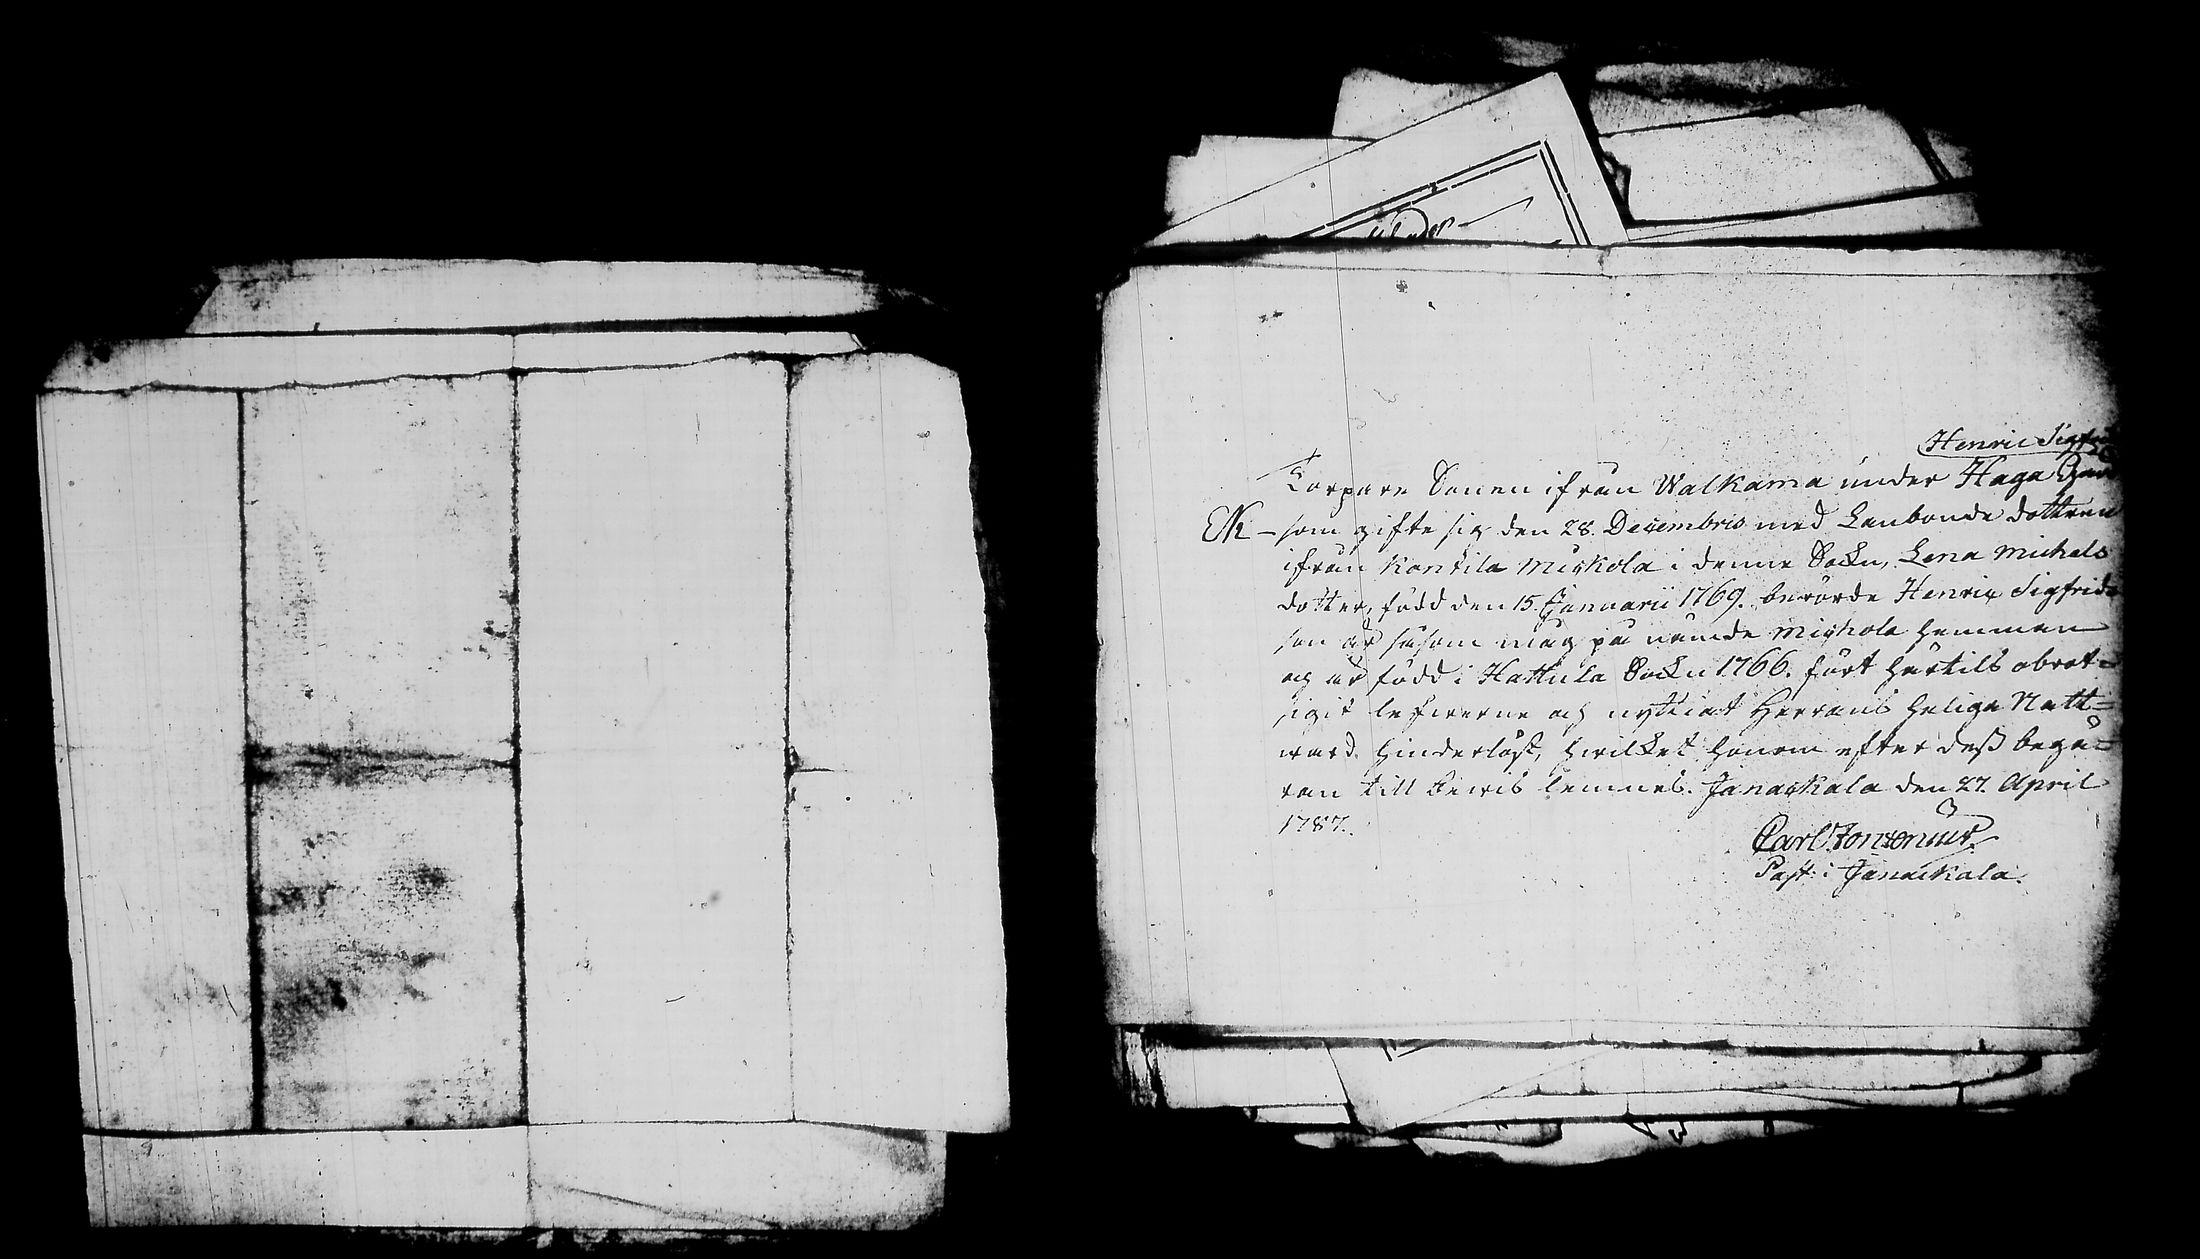 Henric Sigfrids
Torpare Sonen ifrån Walkama under Haga Gård
EK – som gifte sig den 28. Decembris med Lanbonde dottren
ifrån Kontila Miskola i denne Sockn, Lena Michels
dotter, född den 15. Januarii 1769. berörde Henric Sigfrids
son är såsom mag på nämde Miskola Hemman
og är född i Hattula Sockn 1766. fört härtils obrot=
sigit lefwerne och nyttiat Herrans Helige Natt=
ward hinderlöst, hwilket honom efter dess begä=
ran till bewis lemnes. Janackala den 27. April
1787.
Carl
Past: i Janackala.